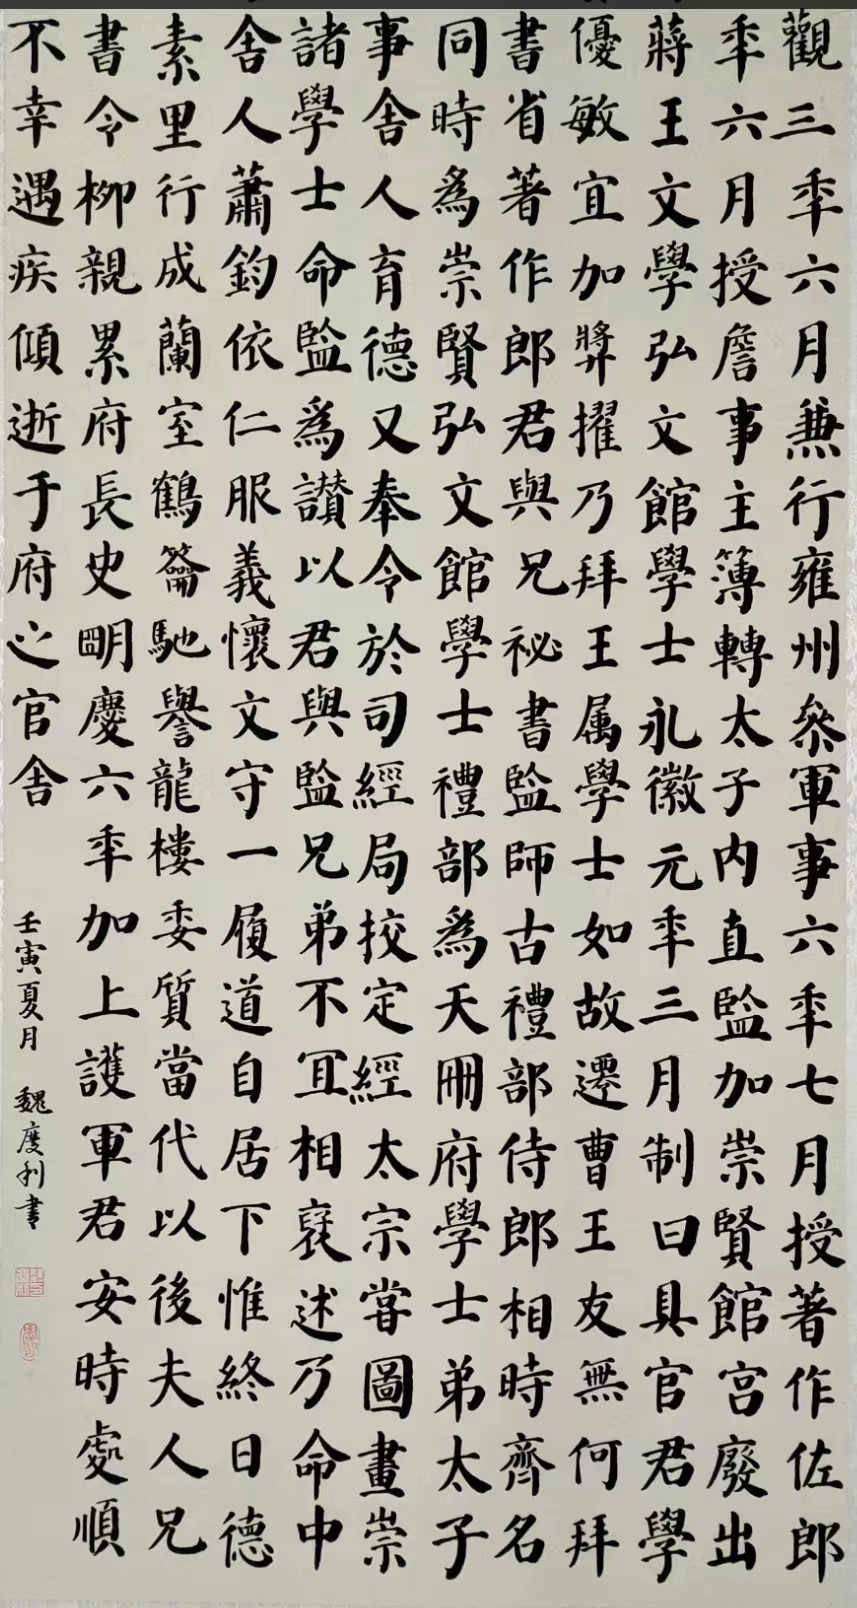 觀三秊六月兼行雍州叅軍事六秊七月授著作佐郎
秊六月授詹事主簿轉太子内直監加崇賢館宫廢出
蔣王文學弘文館學士永徽元秊三月制曰具官君學
優敏宜加奬擢乃拜王属學士如故遷曹王友無何拜
書省著作郎君與兄祕書監師古禮部侍郎相時齊名
同時爲崇賢弘文館學士禮部爲天冊府學士弟太子
事舍人育德又奉令於司經局挍定經太宗甞圖畫崇
諸學士命監爲讃以君與監兄弟不冝相襃述乃命中
舍人蕭鈞依仁服義懷文守一履道自居下惟終日德
素里行成蘭室鶴籥馳譽龍樓委質當代以後夫人兄
書令柳親累府長史朙慶六秊加上護軍君安時處順
不幸遇疾傾逝于府之官舍
壬寅夏月 魏度利書